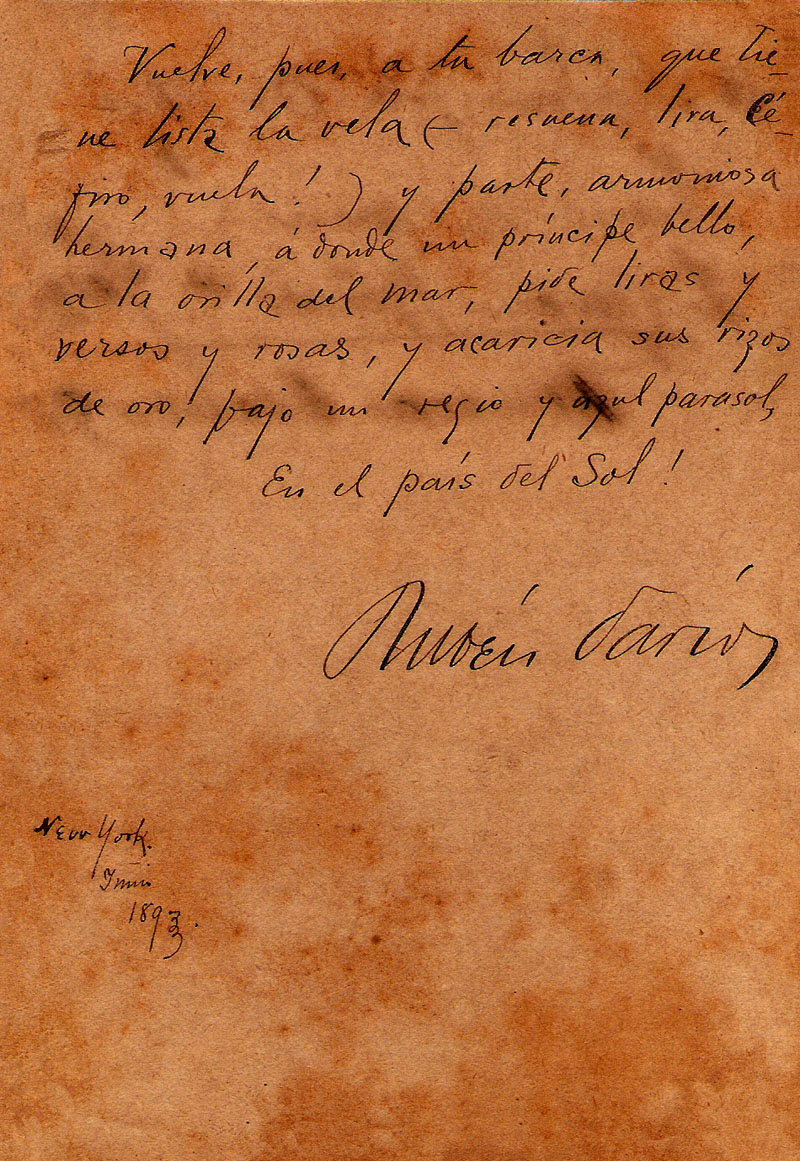 Vuelve, pues, a tu barca, que tie-
ne lista la vela (— resuena, lira, Cé-
firo, vuela! ) y parte, armoniosa
hermana, á donde un príncipe bello,
a la orilla del mar, pide liras y
versos y rosas, y acaricia sus rizos
de oro, bajo un regio y azul parasol,
En el país del Sol!
Rubén Darío
New York.
Junio
1893.